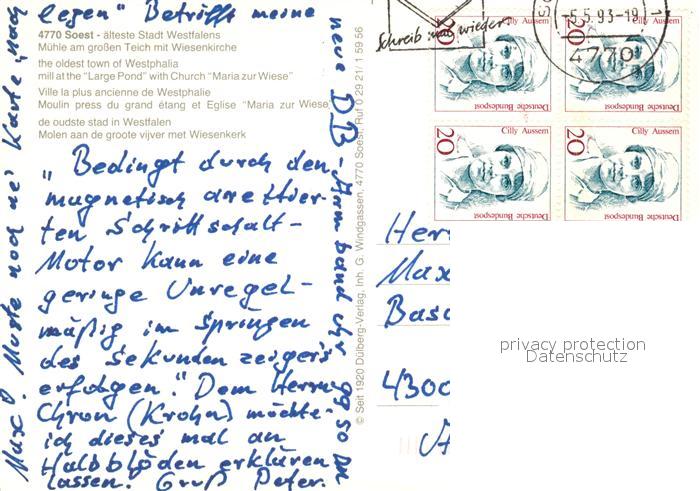 legen" Betrifft meine
4770 Soest - älteste Stadt Westfalens
Mühle am großen Teich mit Wiesenkirche
the oldest town of Westphalia
mill at the "Large Pond" with Church "Maria zur Wiese"
Ville la plus ancienne de Westphalie
Moulin press du grand étang et Eglise "Maria zur Wiese"
de oudste stad in Westfalen
Molen aan de groote vijver met Wiesenkerk
„Bedingt durch den
magnetisch aretier-
ten Schrittschalt-
Motor kann eine
geringe Unregel-
mäßig im Springen
des Sekundenzeigers
erfolgen." Dem Herrn
Chron (Krohn) möchte
ich dieses mal an
Halbblöden erklären
lassen. Gruß Peter.
Max! Mußte noch ne' Karte „nach
neue DB-Armbanduhr 99 50 DM
© Seit 1920 Dülberg-Verlag, Inh. G. Windgassen, 4770 Soest, Ruf 0 29 21/ 1 59 56
Schreib mal wieder
-5.5.93-19
4770
20
Cilly Aussem
Deutsche Bundespost
20
Cilly Aussem
Deutsche Bundespost
20
Cilly Aussem
Deutsche Bundespost
20
Cilly Aussem
Deutsche Bundespost
Herr
Max
Basc
4300
privacy protection
Datenschutz